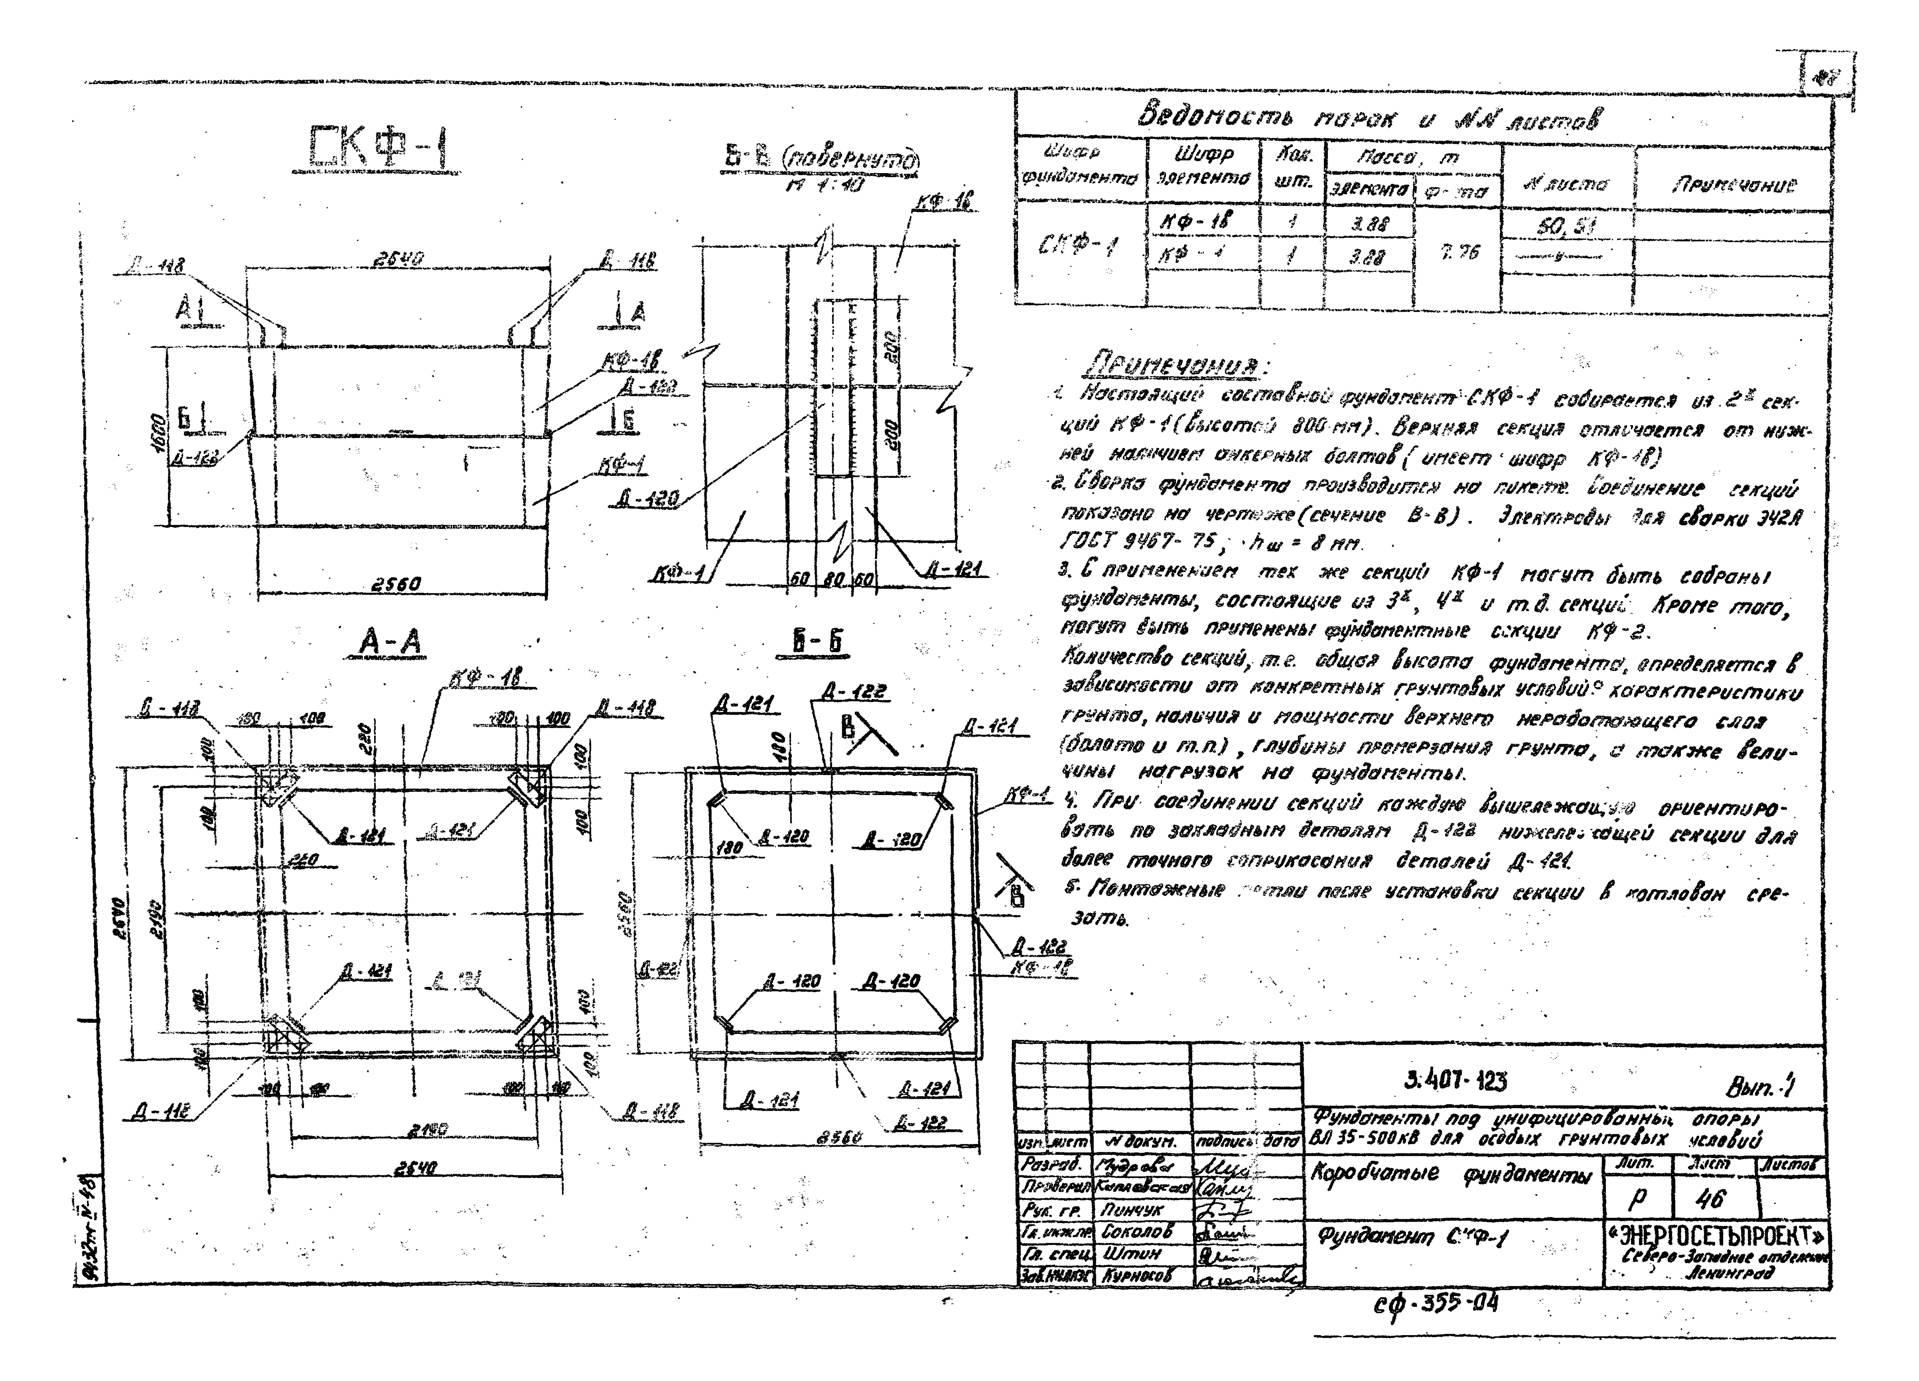 СКФ-1
Д-118
2640
Д-118
А
А
КФ-1в
Д-122
Б
Б
1600
Д-122
КФ-1
2560
В-В (повернуто)
М 1:10
КФ-1в
200
200
Д-120
КФ-1
60
80
60
Д-121
А-А
КФ-1в
Д-118
100
100
220
100
100
Д-118
100
100
100
100
Д-121
Д-121
220
2640
2190
Д-121
Д-121
100
100
100
100
100
100
100
100
Д-118
Д-118
2190
2640
Б-Б
Д-122
Д-121
В
Д-121
180
КФ-1
Д-120
Д-120
180
В
2560
Д-122
Д-122
КФ-1в
Д-120
Д-120
Д-121
Д-121
Д-122
2560
Ведомость марок и NN листов
Шифр фундамента
Шифр элемента
Кол. шт.
Масса, т
элемента
ф-та
N листа
Примечание
СКФ-1
КФ-1в 1 3.88 7.76 50, 51
КФ-1 1 3.88 —"—
Примечания:
1. Настоящий составной фундамент СКФ-1 собирается из 2х сек-
ций КФ-1 (высотой 800 мм). Верхняя секция отличается от ниж-
ней наличием анкерных болтов (имеет шифр КФ-1в)
2. Сборка фундамента производится на пикете. Соединение секций
показано на чертеже (сечение В-В). Электроды для сварки Э42А
ГОСТ 9467-75; hш = 8 мм.
3. С применением тех же секций КФ-1 могут быть собраны
фундаменты, состоящие из 3х, 4х и т.д. секций. Кроме того,
могут быть применены фундаментные секции КФ-2.
Количество секций, т.е. общая высота фундамента, определяется в
зависимости от конкретных грунтовых условий: характеристики
грунта, наличия и мощности верхнего неработающего слоя
(болото и т.п.), глубины промерзания грунта, а также вели-
чины нагрузок на фундаменты.
4. При соединении секций каждую вышележащую ориентиро-
вать по закладным деталям Д-122 нижележащей секции для
более точного соприкасания деталей Д-121.
5. Монтажные петли после установки секции в котлован сре-
зать.
3.407-123
Вып. 1
Фундаменты под унифицированный опоры
ВЛ 35-500кВ для особых грунтовых условий
изм. лист N докум. подпись дата
Разраб. Мудрова
Проверил
Рук. гр. Пинчук
Гл. инж.пр. Соколов
Гл. спец. Штин
Зав. НИЛКЭС Курносов
Коробчатые фундаменты
Лит. Лист Листов
Р 46
Фундамент СКФ-1
«ЭНЕРГОСЕТЬПРОЕКТ»
Северо-Западное отделение
Ленинград
СФ-355-04
9432тм N-48